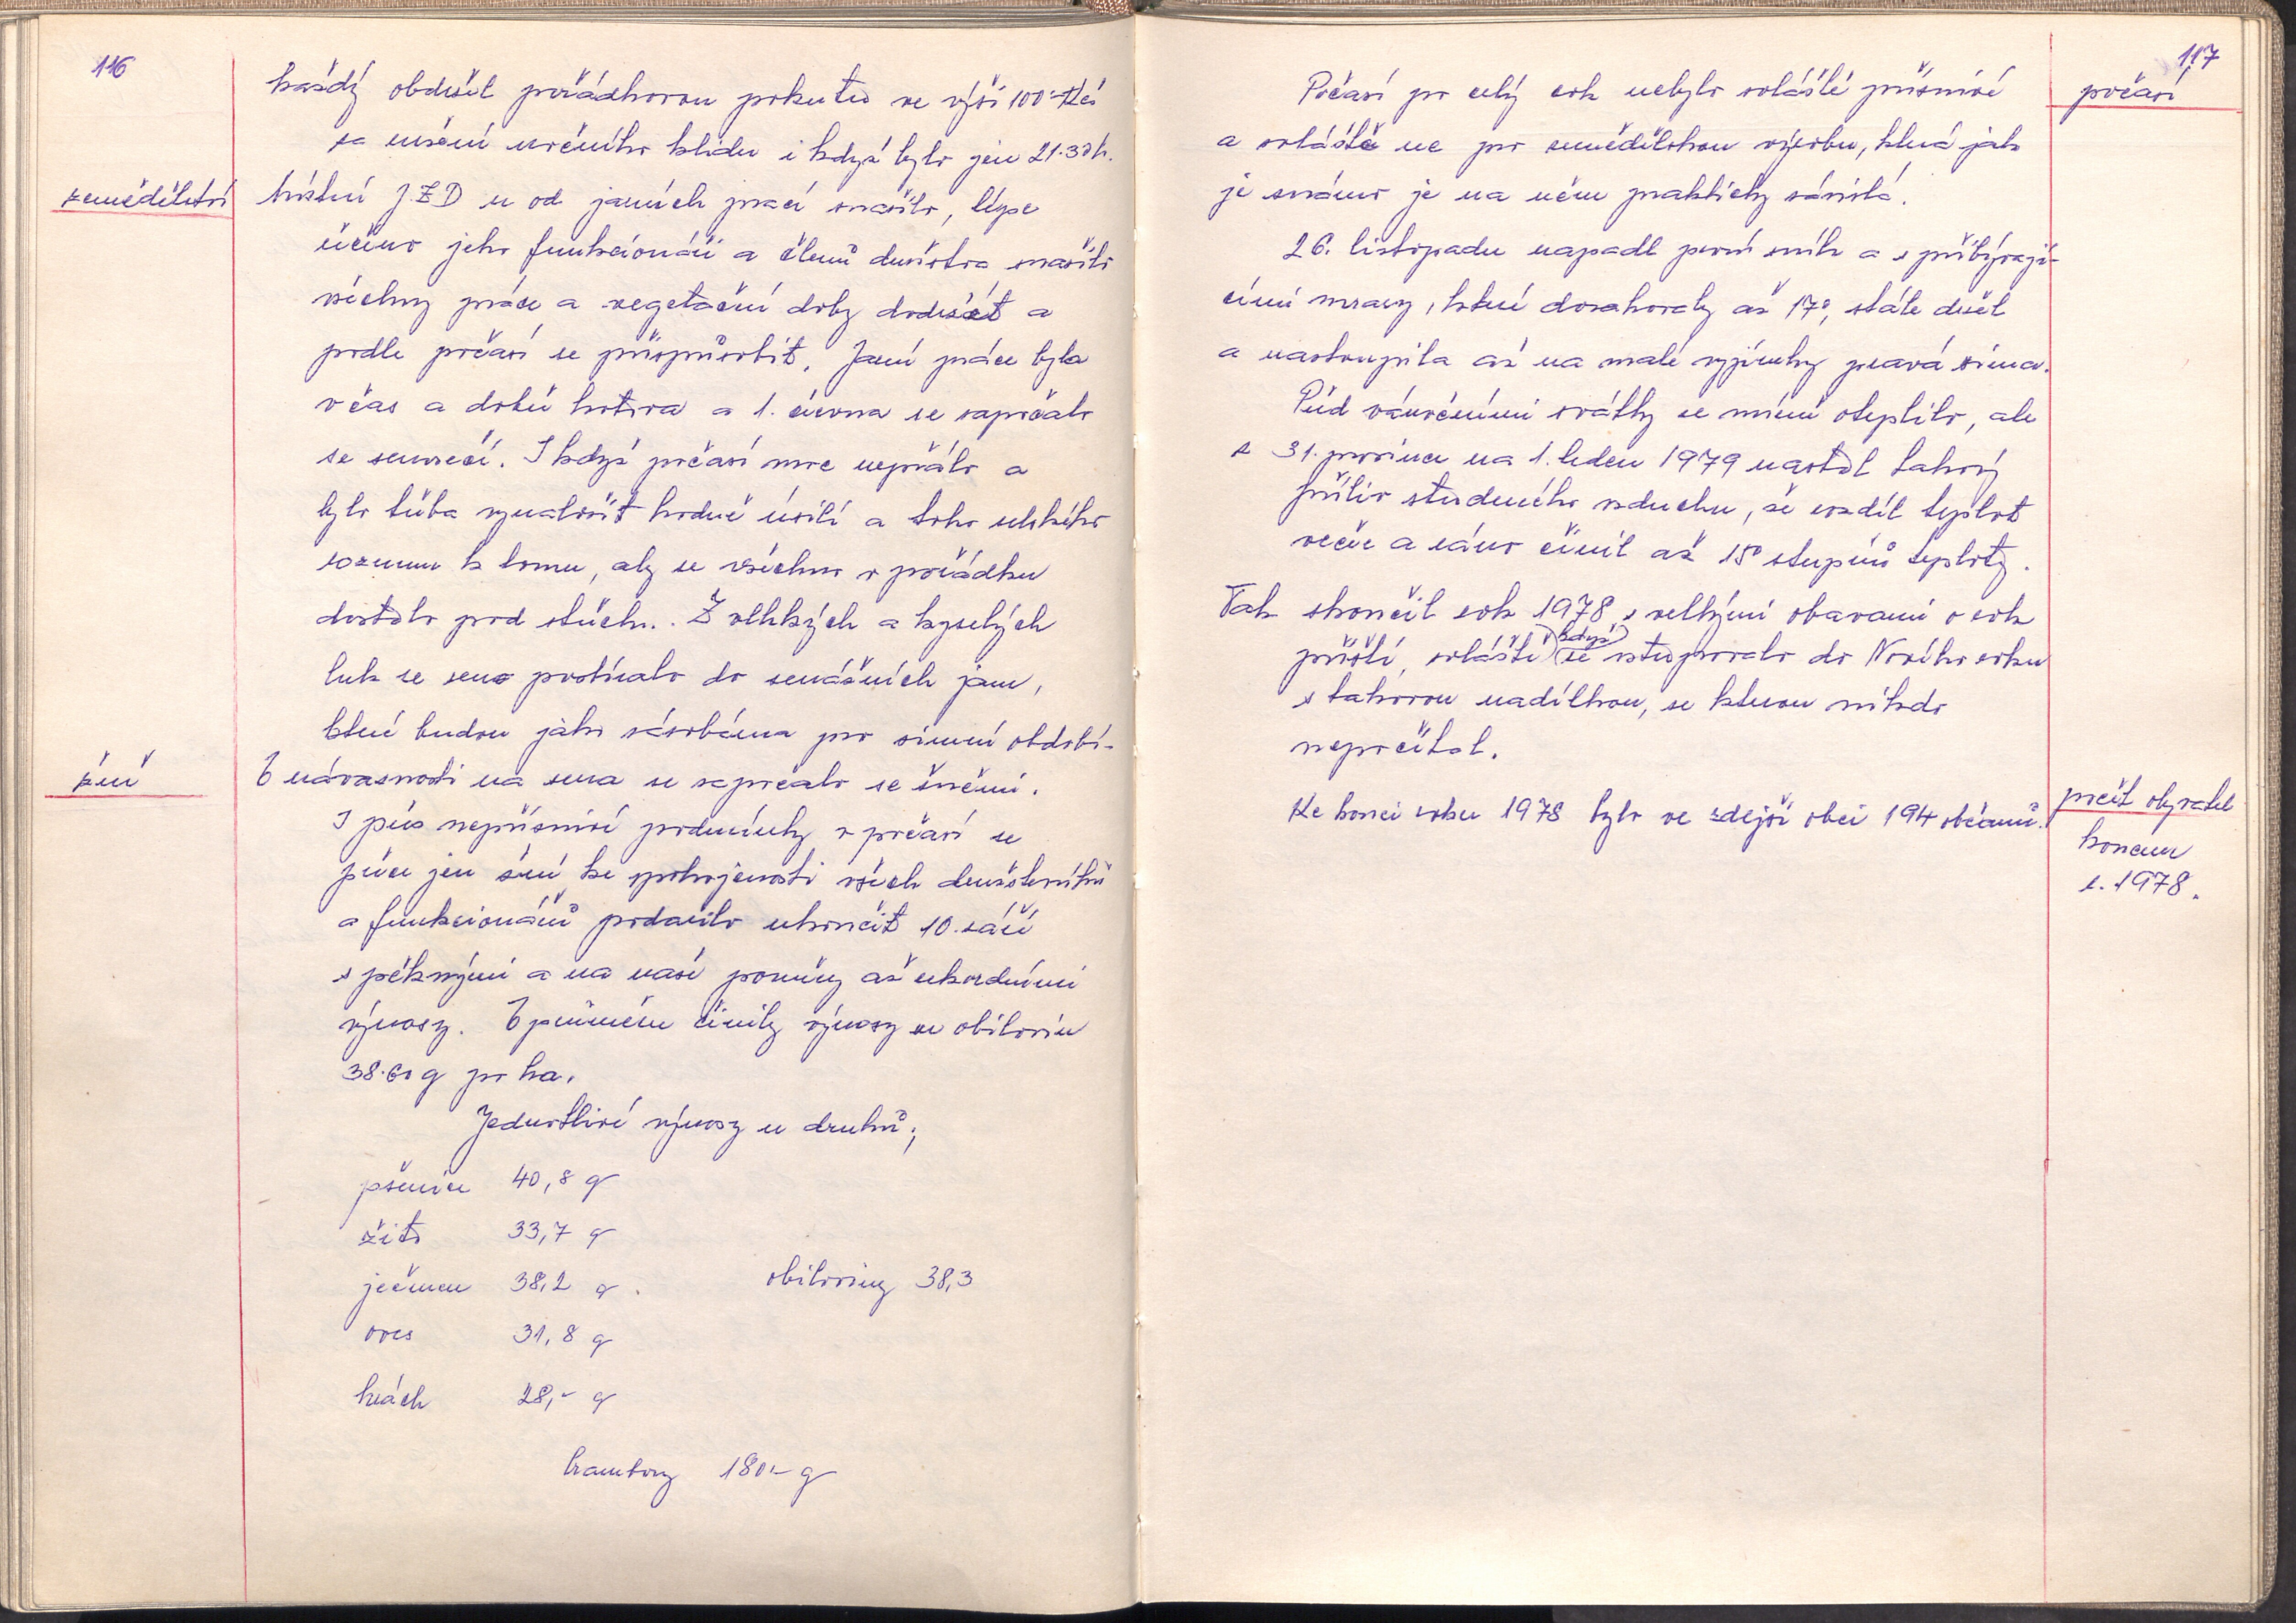 116
každý obdržel pořádkovou pokutu ve výši 100.- Kčs
za rušení nočního klidu i když bylo jen 21.30 h.
zemědělství
Místní J.Z.D se od jarních prací snažilo, lépe
řečeno jeho funkcionáři a členi družstva snažili
všechny práce a vegetační doby dodržet a
podle počasí se přizpůsobit. Jarní práce byla
včas a dobře hotova a 1. června se započalo
se senosečí. I když počasí moc nepřálo a
bylo třeba vynaložit hodně úsilí a toho selského
rozumu k tomu, aby se všechno v pořádku
dostalo pod střechu. Z vlhkých a kyselých
luk se seno postíralo do senážních jam,
které budou jako zásobárna pro zimní období.
žně
V návaznosti na sena se započalo se žněmi.
I přes nepříznivé podmínky v počasí se
přece jen žně ke spokojenosti všech družstevníků
a funkcionářů podařilo ukončit 10. září
s pěknými a na naše poměry až rekordními
výnosy. V průměru činily výnosy u obilovin
38.60 q po ha.
Jednotlivé výnosy u druhů;
pšenice 40,8 q
žito 33,7 q
ječmen 38,2 q. obiloviny 38,3
oves 31,8 q
hrách 28,- q
brambory 180.- q
117
počasí
Počasí po celý rok nebylo zvláště příznivé
a zvláště ne pro zemědělskou výrobu, která jak
je známo je na něm prakticky závislá.
26. listopadu napadl první sníh a s přibývají-
cími mrazy, které dosahovaly až 17°, stále držel
a nastoupila až na malé vyjímky pravá zima.
Před vánočními svátky se mírně oteplilo, ale
z 31. prosince na 1. leden 1979 nastal takový
příliv studeného vzduchu, že rozdíl teplot
večer a ráno činil až 15° stupňů teploty.
Tak skončil rok 1978 s velkými obavami o rok
příští, zvláště (když) se vstupovalo do Nového roku
s takovou nadílkou, se kterou nikdo
nepočítal.
počet obyvatel
koncem
r. 1978.
Ke konci roku 1978 bylo ve zdejší obci 194 občanů.